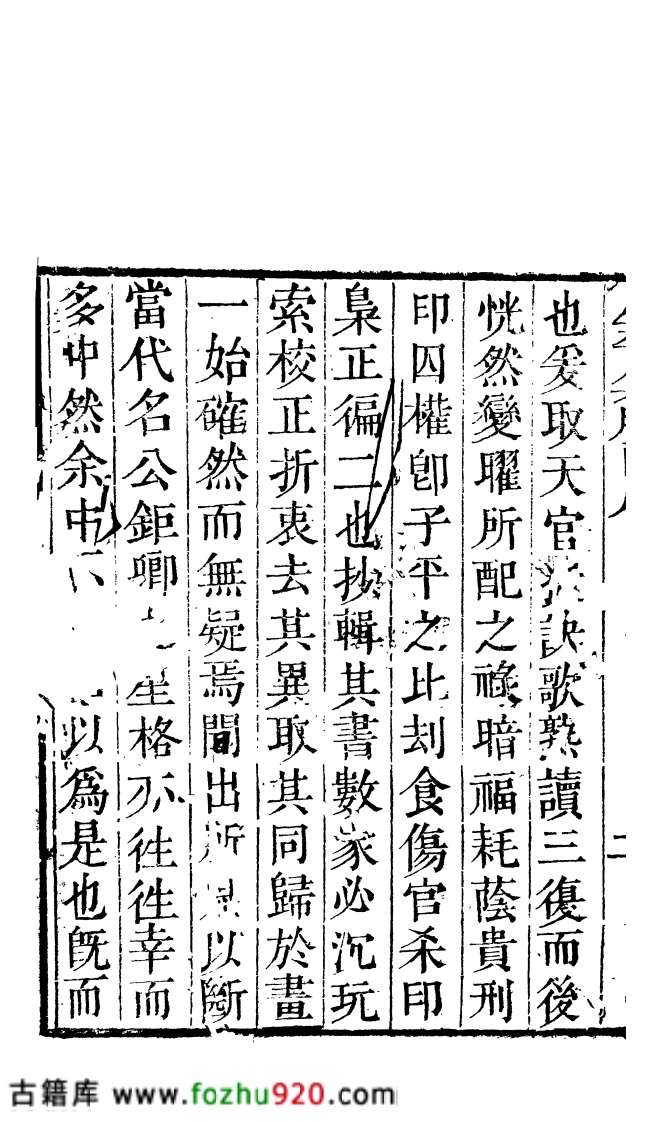 也爰取天官訣歌熟讀三復而後
恍然變曜所配之祿暗福耗蔭貴刑
印囚權卽子平之比刦食傷官杀印
梟正徧二也抄輯其書數家必沉玩
索校正折衷去其異取其同歸於畫
一始確然而無疑焉間出所以斷
當代名公鉅卿星格亦徃徃幸而
多中然余中以爲是也旣而
古籍库 www.fozhu920.com